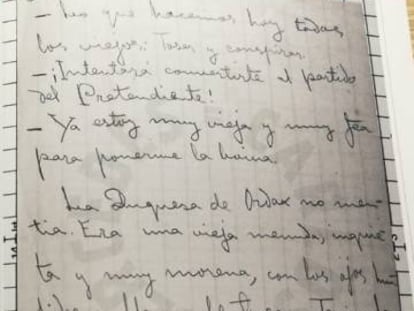 — Lo que hacemos hoy todas
las viejas: Toser y conspirar.
— ¡Intentará convertirte al partido
del Pretendiente!
— Ya estoy muy vieja y muy fea
para ponerme la boina.
La Duquesa de Ordax no men-
tía. Era una vieja menuda, inquie-
ta y muy morena, con los ojos